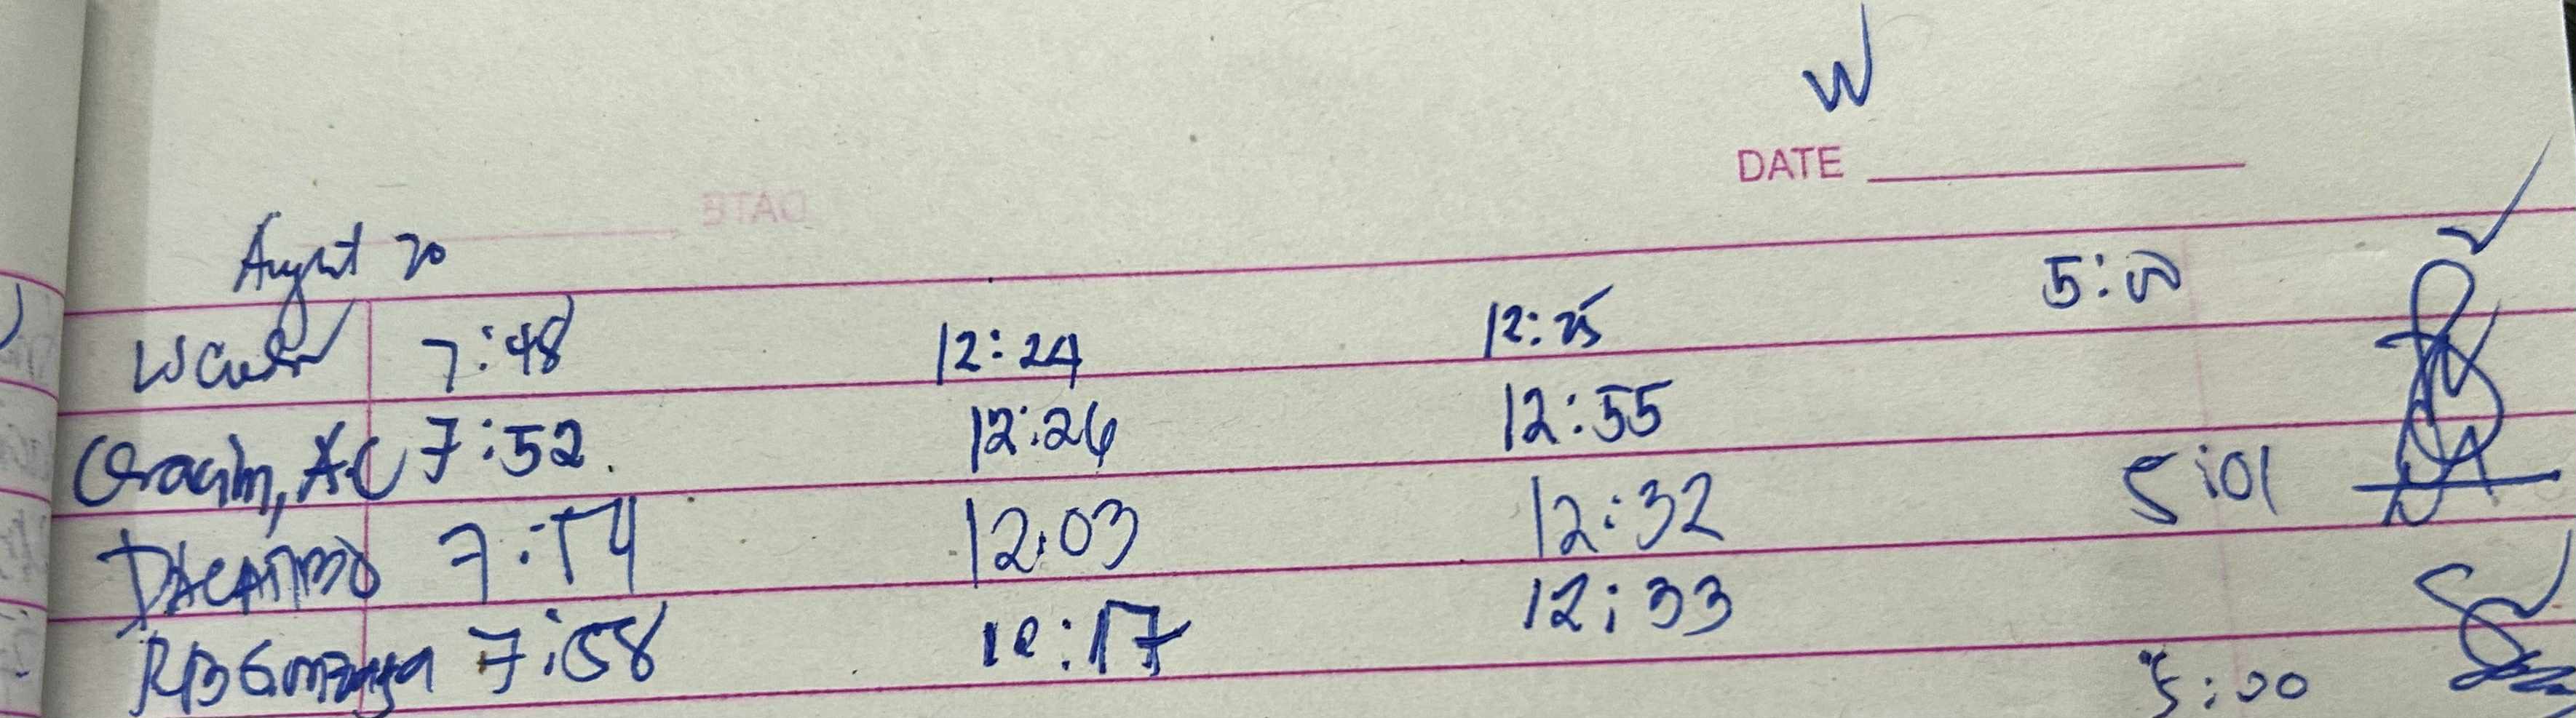 W
DATE
August 20
7:48 12:24 12:25 5:00
7:52 12:26 12:55
7:54 12:03 12:32 5:01
RB Gonzaga 7:58 12:17 12:33 5:00